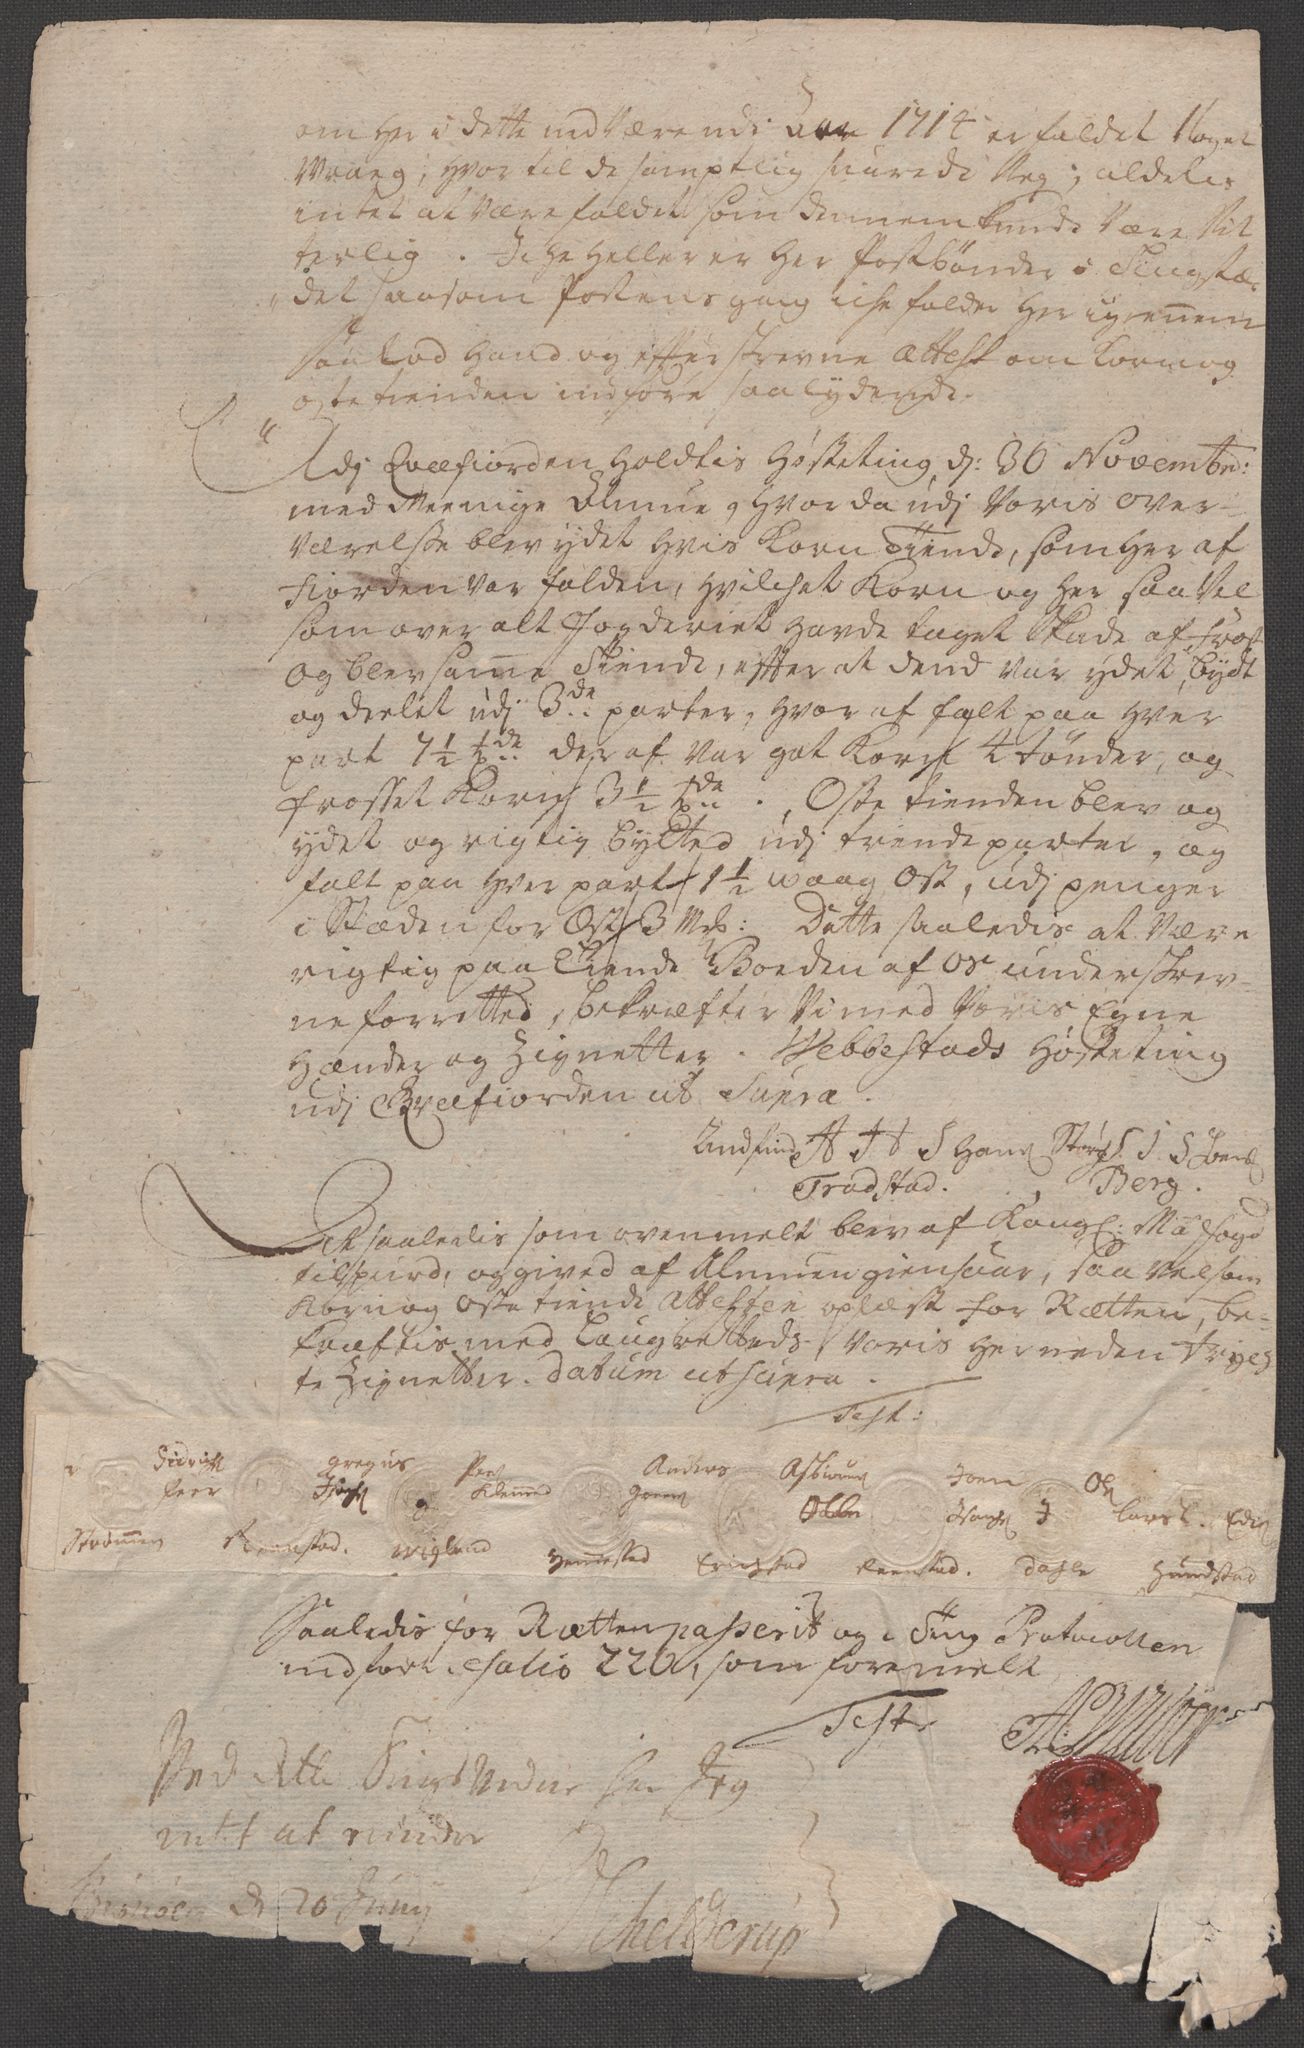 om her i dette indværende Aar 1714 er faldet Noget
Vraeg; hvor til de samptlig svarede Neg; aldeles
intet at være faldet som dennem kunde være Vit
terlig. Iche heller er her Postbønder i Tingstæ
det saasom Postens gang iche falder her igiennem
saa lod hand og effterskrevne attest om Korn og
oste tienden indføre saalydende.
Udj Qvæfiorden holdtis Høsteting, d: 30 Novembr:
med Meenige Almue, hvor da udj voris over-
værelsse blev ydet hvis Korn Tiende, som her af
fiorden var falden, hvilchet Korn og her saa vel
som over alt Fogderiet havde taget skade af frost
og blev samme Tiende, effter at dend var ydet, bÿdt
og deelet udj 3de parter, hvor af falt paa hver
part 7½ tde der af var got Korn 4 tønder, og
frosset Korn 3½ tde. Oste tienden blev og
ydet og rigtig bytted udj trende parter, og
falt paa hver part 1½ waag Ost, udj penger
i Stæden for Ost 3 Mrk: Dette saaledis at være
rigtig paa Tiende Boeden af os underskrev-
ne forretted, bekræfter Vi med Voris Egne
Hænder og Zignetter. Webbestads Høsteting
udj Qvæfiorden ut Supra.
Hans S. I. S
Trædstad. Berg.
At saaledis som ovenmelt blev af Kongl: May: fogd
tilspurd, og gived af Almuen giensvar, saa vel som
Korn og Oste tiende Attesten oplæst for Rætten, be-
kræftis med Laugrettets voris her neden trygh
te Zignetter. Datum ut supra.
Test:
Didrich Gregus Peer Anders Asbiørn Joen Ole
Peer Klemmed Lars Edis
Strømmen Reenstad. Wigland Hemmestad Erichstad Reenstad. Dahle Hundstad
Saaledis for Rætten passerit og i Ting Protocollen
indført folio 220, som formelt
Teste
Ved dette Tings Vidne har Jeg
intet at erindre
d 20 Juny
Schelderup